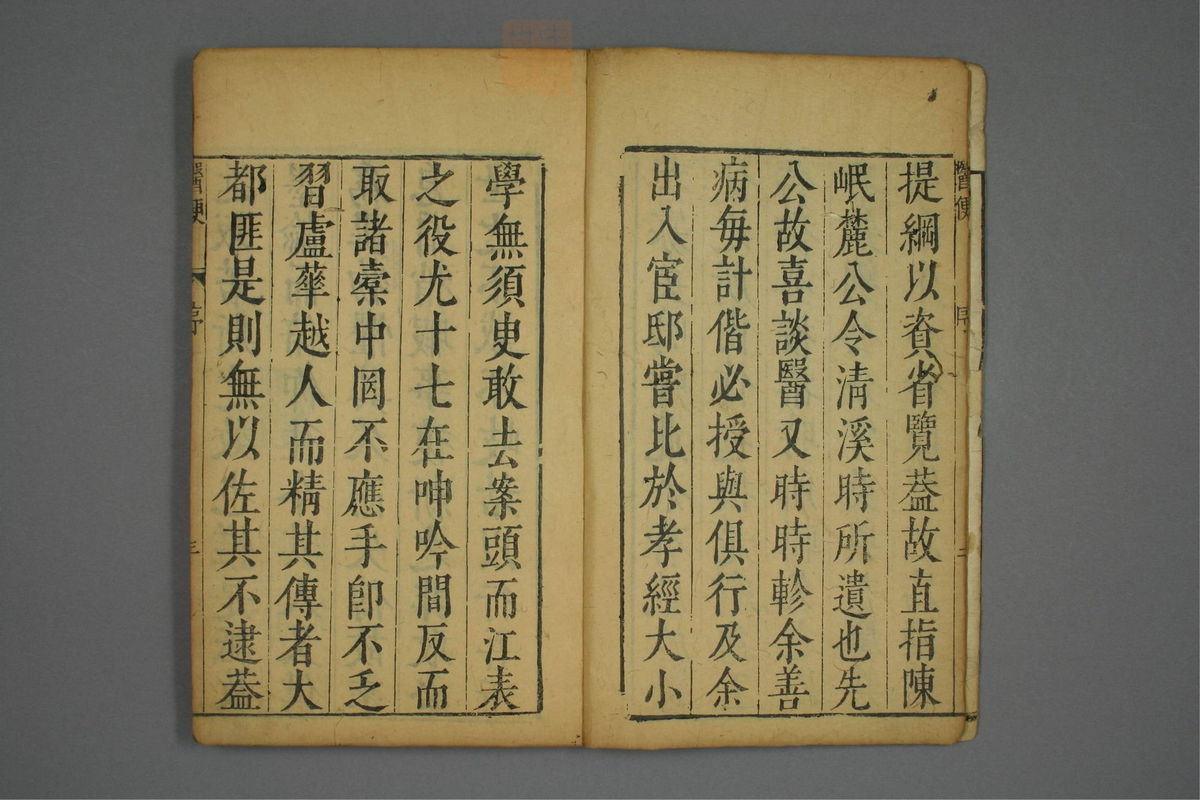 提綱以資省覽葢故直指陳
岷麓公令清溪時所遺也先
公故喜談醫又時時軫余善
病毎計偕必授與俱行及余
出入宦邸嘗比於孝經大小
學無須臾敢去案頭而江表
之役尤十七在呻吟間反而
取諸槖中罔不應手卽不乏
習盧華越人而精其傳者大
都匪是則無以佐其不逮葢
醫便
序
三